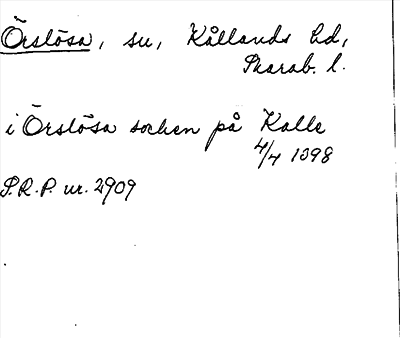 Örslösa, sn, Kållands hd,
Skarab. l.
i Örslösa sochen på Kalle
4/4 1398
S.R.P. nr. 2909